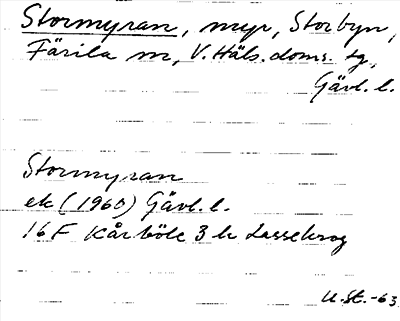 Stormyran, myr, Storbyn,
Färila sn, V. Häls. doms. tg,
Gävl. l.
Stormyran
ek (1960) Gävl. l.
16 F Kårböle 3 h Lassekrog
U. St. -63